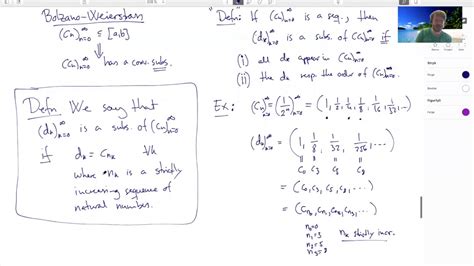 Bolzano-Weierstrass
(Cn)∞n=0 ⊆ [a,b]
⇓
(Cn)∞n=0 has a conv. subs.
Defn: We say that
(dk)∞k=0 is a subs. of (Cn)∞n=0
if dk = Cnk ∀k
where nk is a strictly
increasing sequence of
natural numbers.
"Defn": If (Cn)∞n=0 is a seq., then
(dk)∞k=0 is a subs. of (Cn)∞n=0 if
(i) all dk appear in (Cn)∞n=0
(ii) the dk resp. the order of (Cn)∞n=0
Ex: (Cn)∞n=0 = (1/2^n)∞n=0 = (1, 1/2, 1/4, 1/8, 1/16, 1/32, ...)
(dk)∞k=0 = (1, 1/8, 1/32, 1/256, ...)
= = = =
C0 C3 C5 C8
= (C0, C3, C5, C8, ...)
= (Cn0, Cn1, Cn2, Cn3, ...)
n0=0
n1=3
n2=5
n3=8
nk strictly incr.